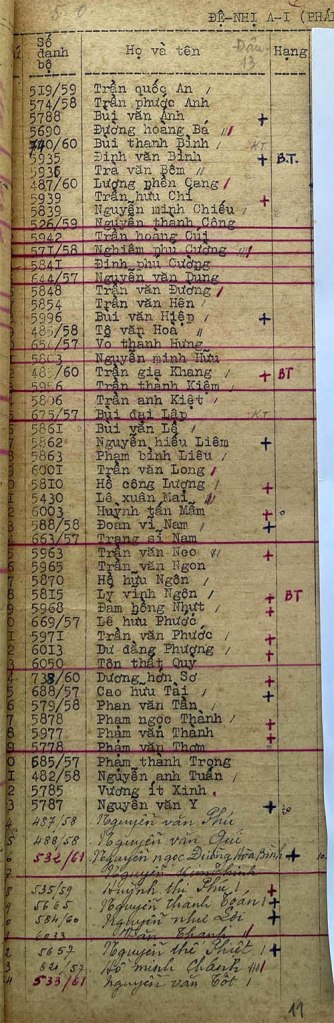 ĐỆ-NHỊ A-I (PHÁ
Số danh bộ Họ và tên Đầu 13 Hạng
519/59 Trần quốc An /
574/58 Trần phước Anh
5788 Bùi văn Ảnh +
5690 Đường hoàng Bá
740/60 Bùi thanh Bình / KT
5935 Đinh văn Bình + B.T.
5936 Trà văn Bôm /
487/60 Lương phến Cang /
5939 Trần hữu Chí +
5839 Nguyễn minh Chiếu /
526/59 Nguyễn thành Công
5942 Trần hoàng Chi
571/58 Nghiêm phú Cường
5841 Đinh phú Cường
544/57 Nguyễn văn Dung
5848 Trần văn Đương /
5854 Trần văn Hên
5996 Bùi văn Hiệp / +
485/58 Tô văn Hoà
654/57 Vo thanh Hưng
5603 Nguyễn minh Hữu
485/60 Trần gia Khang / + BT
5956 Trần thành Kiệm /
5806 Trần anh Kiệt /
675/57 Bùi đại Lập KT
5861 Bùi văn Lê /
5862 Nguyễn hiếu Liêm +
5863 Phạm bỉnh Liêu /
6001 Trần văn Long /
5810 Hồ công Lương / +
5430 Lê xuân Mai
6003 Huỳnh tấn Mẫm +
588/58 Đoan vĩ Nam / +
663/57 Trang sĩ Nam
5963 Trần văn Neo +
5965 Trần văn Ngon
5870 Hồ hữu Ngôn /
5815 Lý vinh Ngôn / + BT
5968 Đàm hồng Nhựt / +
669/57 Lê hữu Phước
5971 Trần văn Phước / +
6013 Dư đằng Phương / +
6050 Tôn thất Quy +
738/60 Dương hơn Sơ +
688/57 Cao hữu Tài / +
579/58 Phan văn Tân /
5878 Phạm ngọc Thành / +
5977 Phạm văn Thành +
5778 Phạm văn Thơm
685/57 Phạm thành Trọng
482/58 Nguyễn anh Tuấn /
5785 Vương ít Xinh
5787 Nguyễn văn Y +
487/58 Nguyễn văn Phú
488/58 Nguyễn văn Quí
532/61 Nguyễn ngọc Dương Hòa Bình +
Nguyễn
535/59 Huỳnh thị Phú / +
5665 Nguyễn thanh Toàn / +
584/60 Nguyễn như Lôi +
6033 Văn Thanh
5657 Nguyễn thị Phiết / +
621/57 Hồ minh Chánh
533/61 Nguyễn văn Tốt /
11